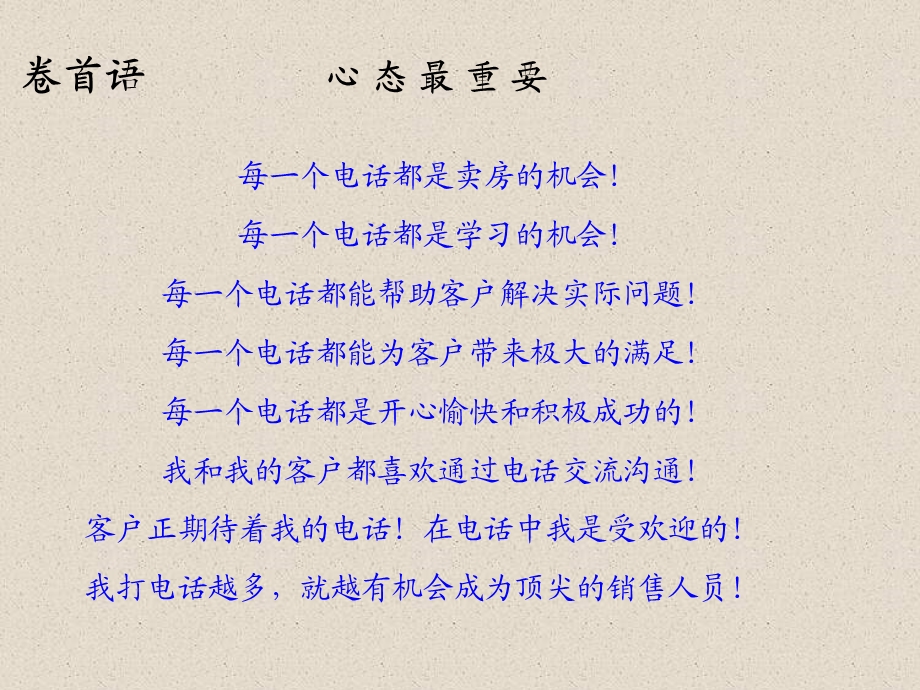 卷首语 心态最重要
每一个电话都是卖房的机会！
每一个电话都是学习的机会！
每一个电话都能帮助客户解决实际问题！
每一个电话都能为客户带来极大的满足！
每一个电话都是开心愉快和积极成功的！
我和我的客户都喜欢通过电话交流沟通！
客户正期待着我的电话！在电话中我是受欢迎的！
我打电话越多，就越有机会成为顶尖的销售人员！